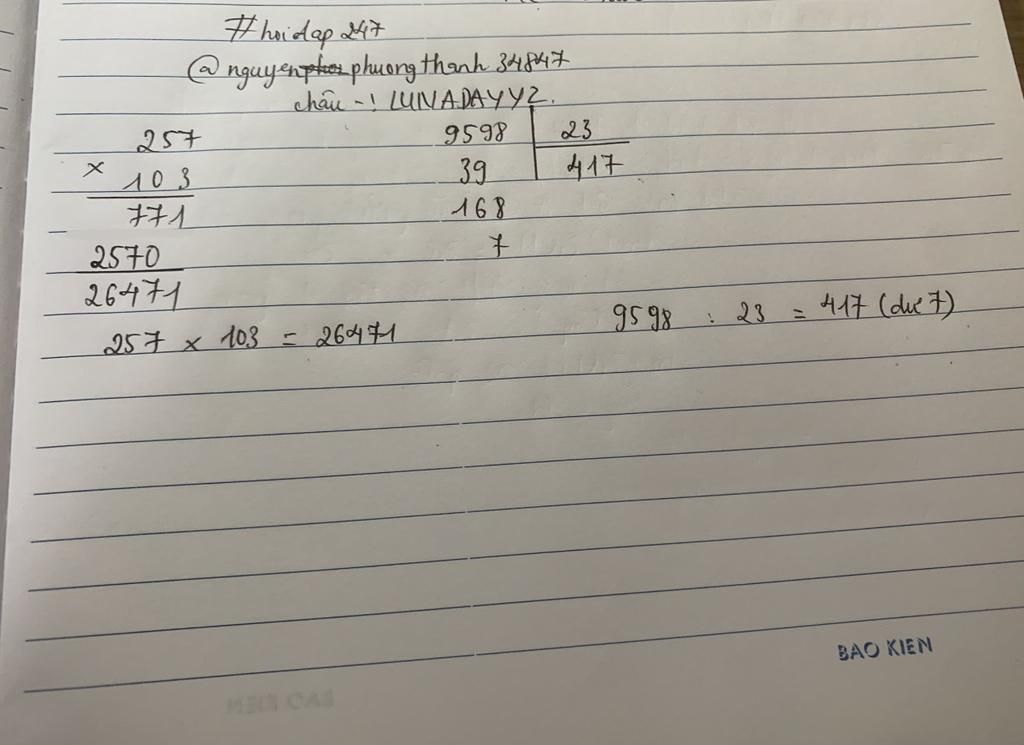 #hoidap247
@nguyenphuongthanh34847
cháu -! LUNADAYYZ.
257
× 103
771
2570
26471
257 × 103 = 26471
9598 23
39 417
168
7
9598 : 23 = 417 (dư 7)
BAO KIEN